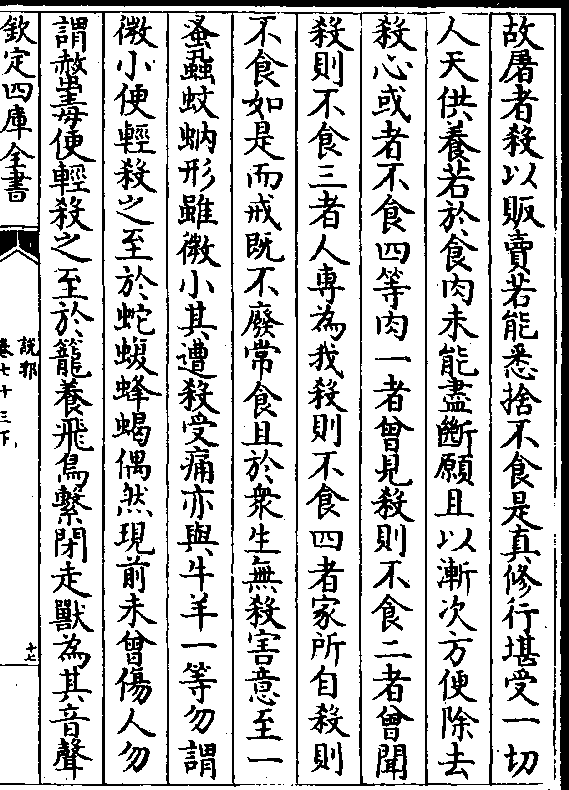 故屠者殺以販賣若能悉捨不食是真修行堪受一切
人天供養若於食肉未能盡斷願且以漸次方便除去
殺心或者不食四等肉一者曾見殺則不食二者曾聞
殺則不食三者人專為我殺則不食四者家所自殺則
不食如是而戒既不廢常食且於衆生無殺害意至一
蚤蝨蚊蚋形雖微小其遭殺受痛亦與牛羊一等勿謂
微小便輕殺之至於蛇蝮蜂蝎偶然現前未曾傷人勿
謂螫毒便輕殺之至於籠養飛鳥繫閉走獸為其音聲
欽定四庫全書
說郛
卷七十三下
十七